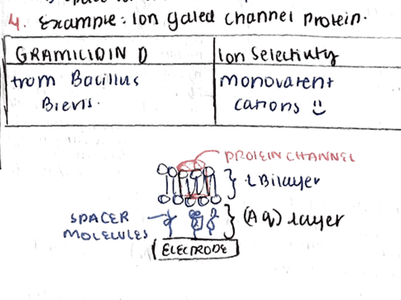 4. Example: Ion gated channel protein.
GRAMILIDIN D
Ion Selectivity
from Bacillus
Biens.
monovarent
cations
PROTEIN CHANNEL
Bilayer
SPACER
MOLELULES
(Aq) layer
ELECTRODE